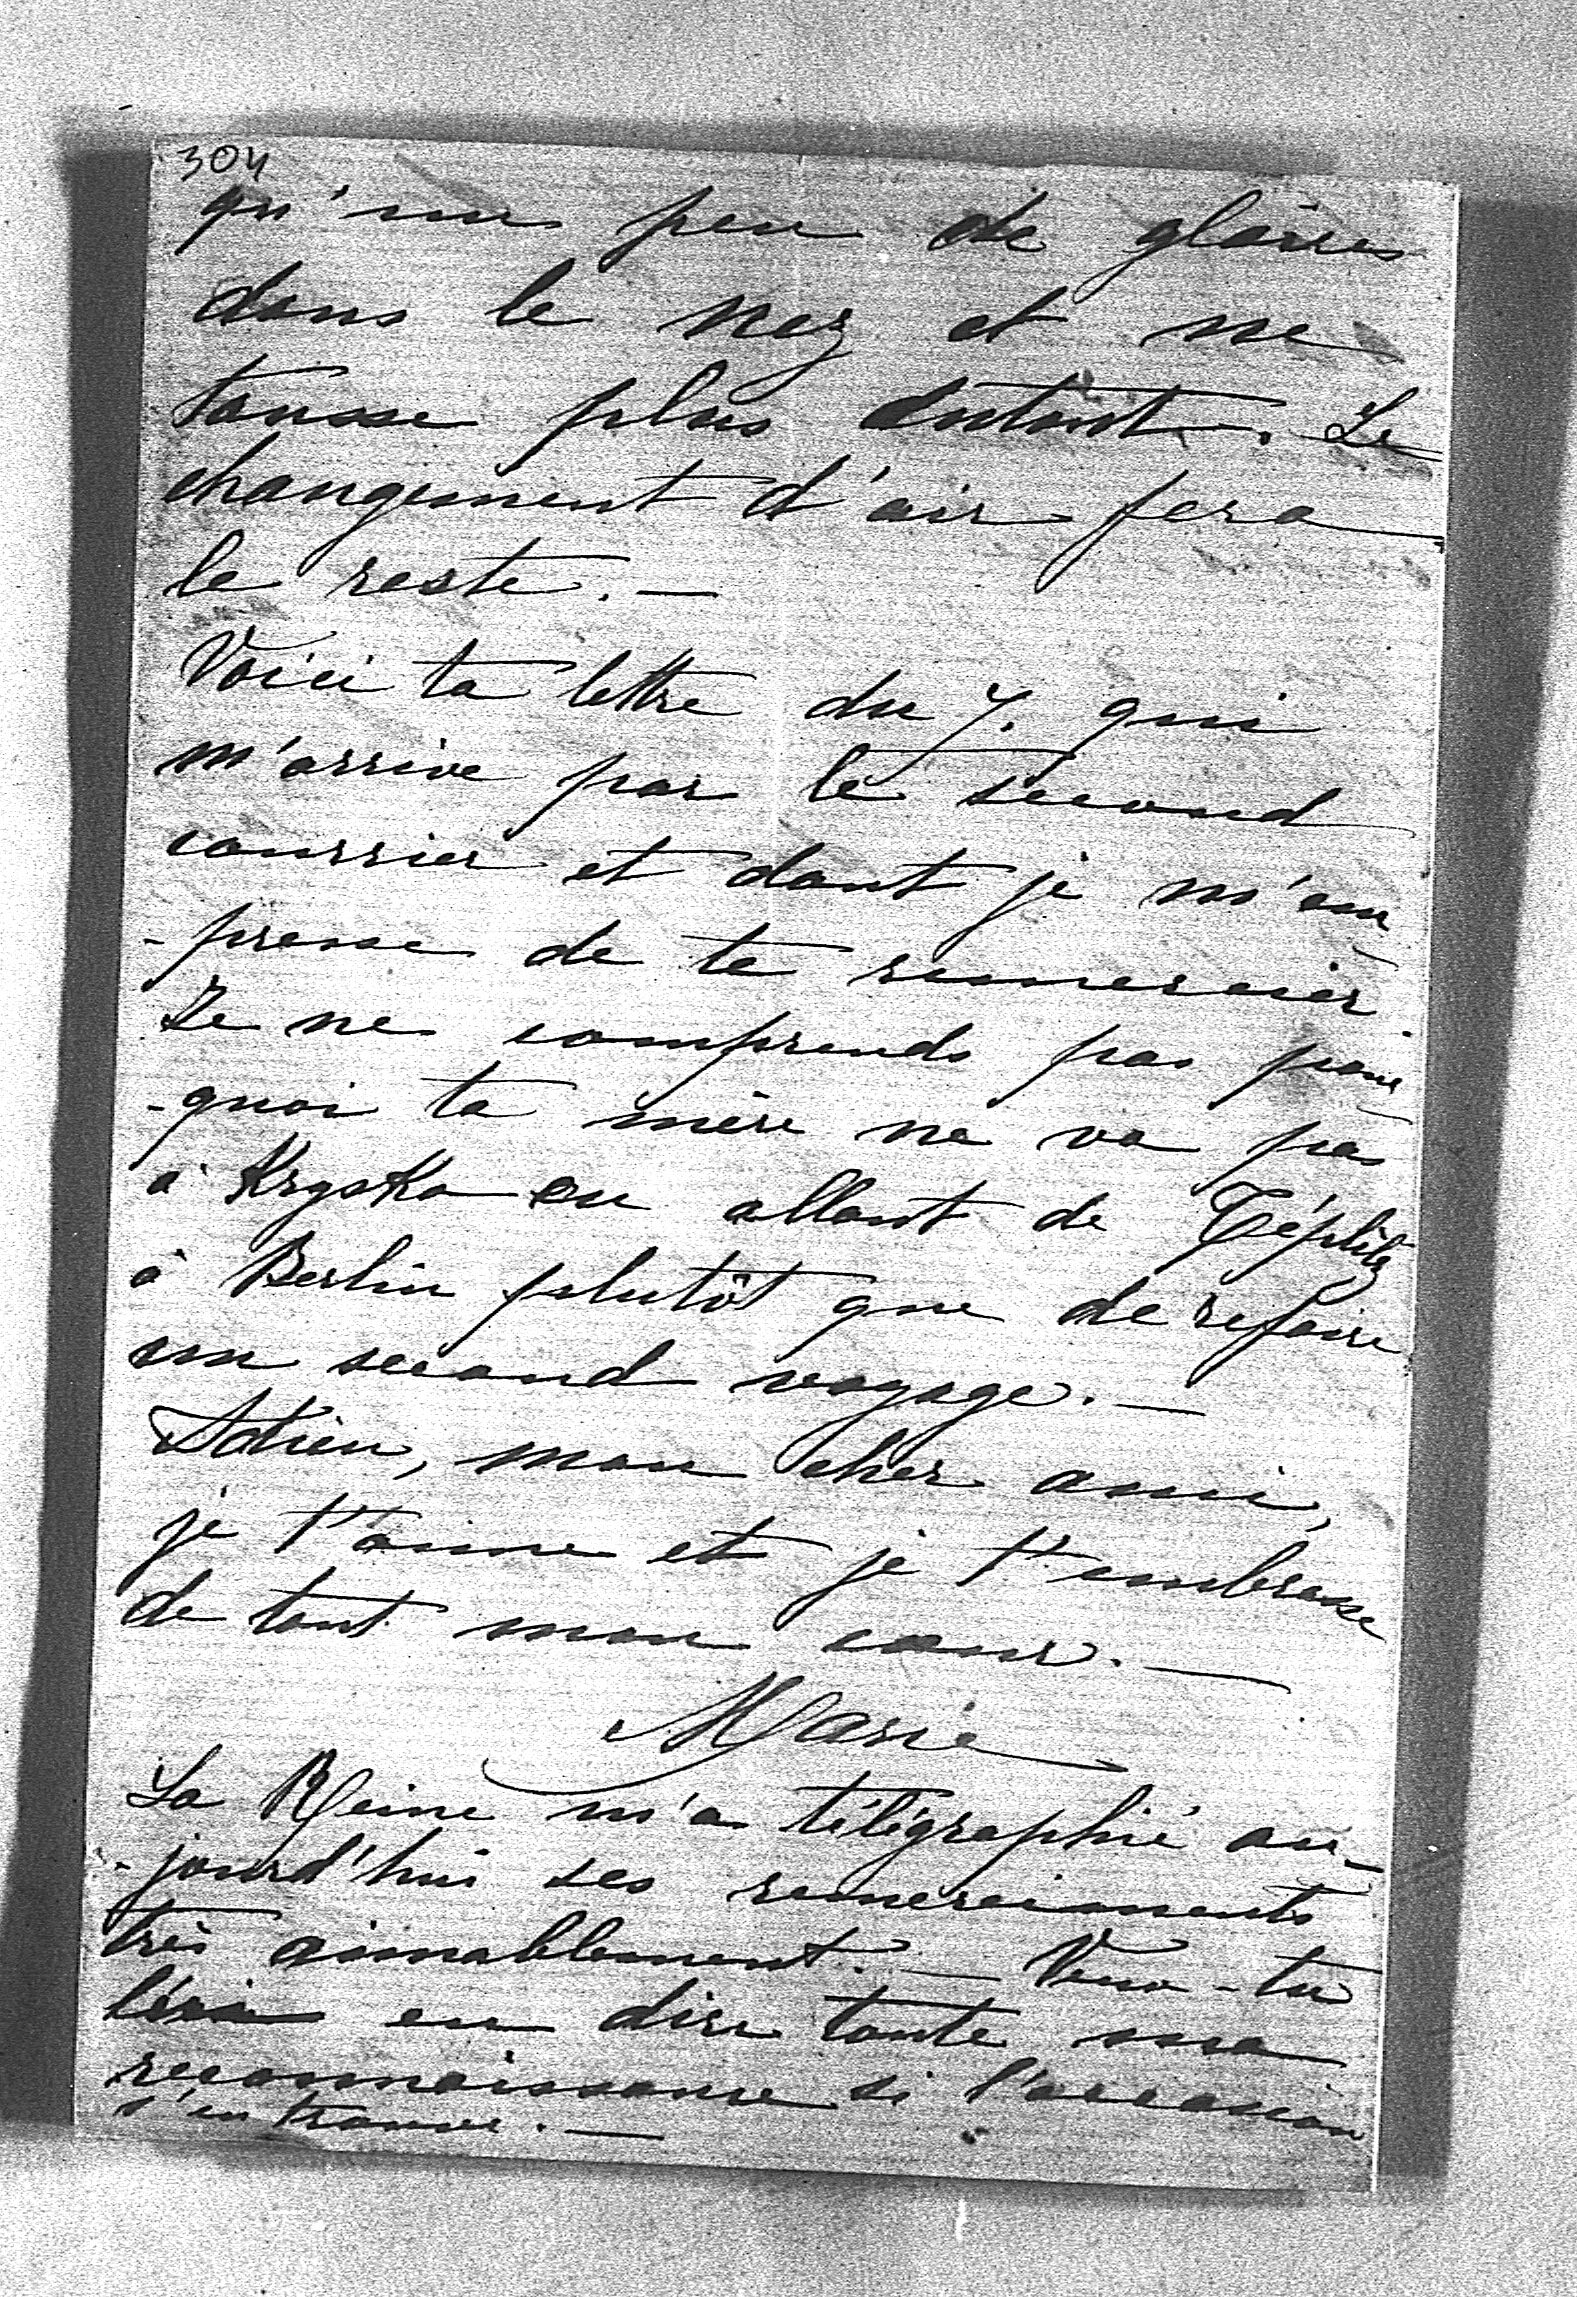 304
qu'un peu de glaires
dans le nez et ne
tousse plus autant. Le
changement d'air fera
le reste. —
Voici ta lettre du 7. qui
m'arrive par le second
courrier et dont je m'em
-presse de te remercier.
Je ne comprends pas pour
-quoi ta mère ne va pas
à Kryska en allant de Téplitz
à Berlin plutôt que de refaire
un second voyage. —
Adieu, mon cher ami,
je t'aime et je t'embrasse
de tout mon cœur. —
Marie
La Reine m'a télégraphié au-
-jourd'hui ses remerciments
très aimablement. — Veux-tu
en dire toute ma
reconnaissance si l'occasion
s'en trouve. —